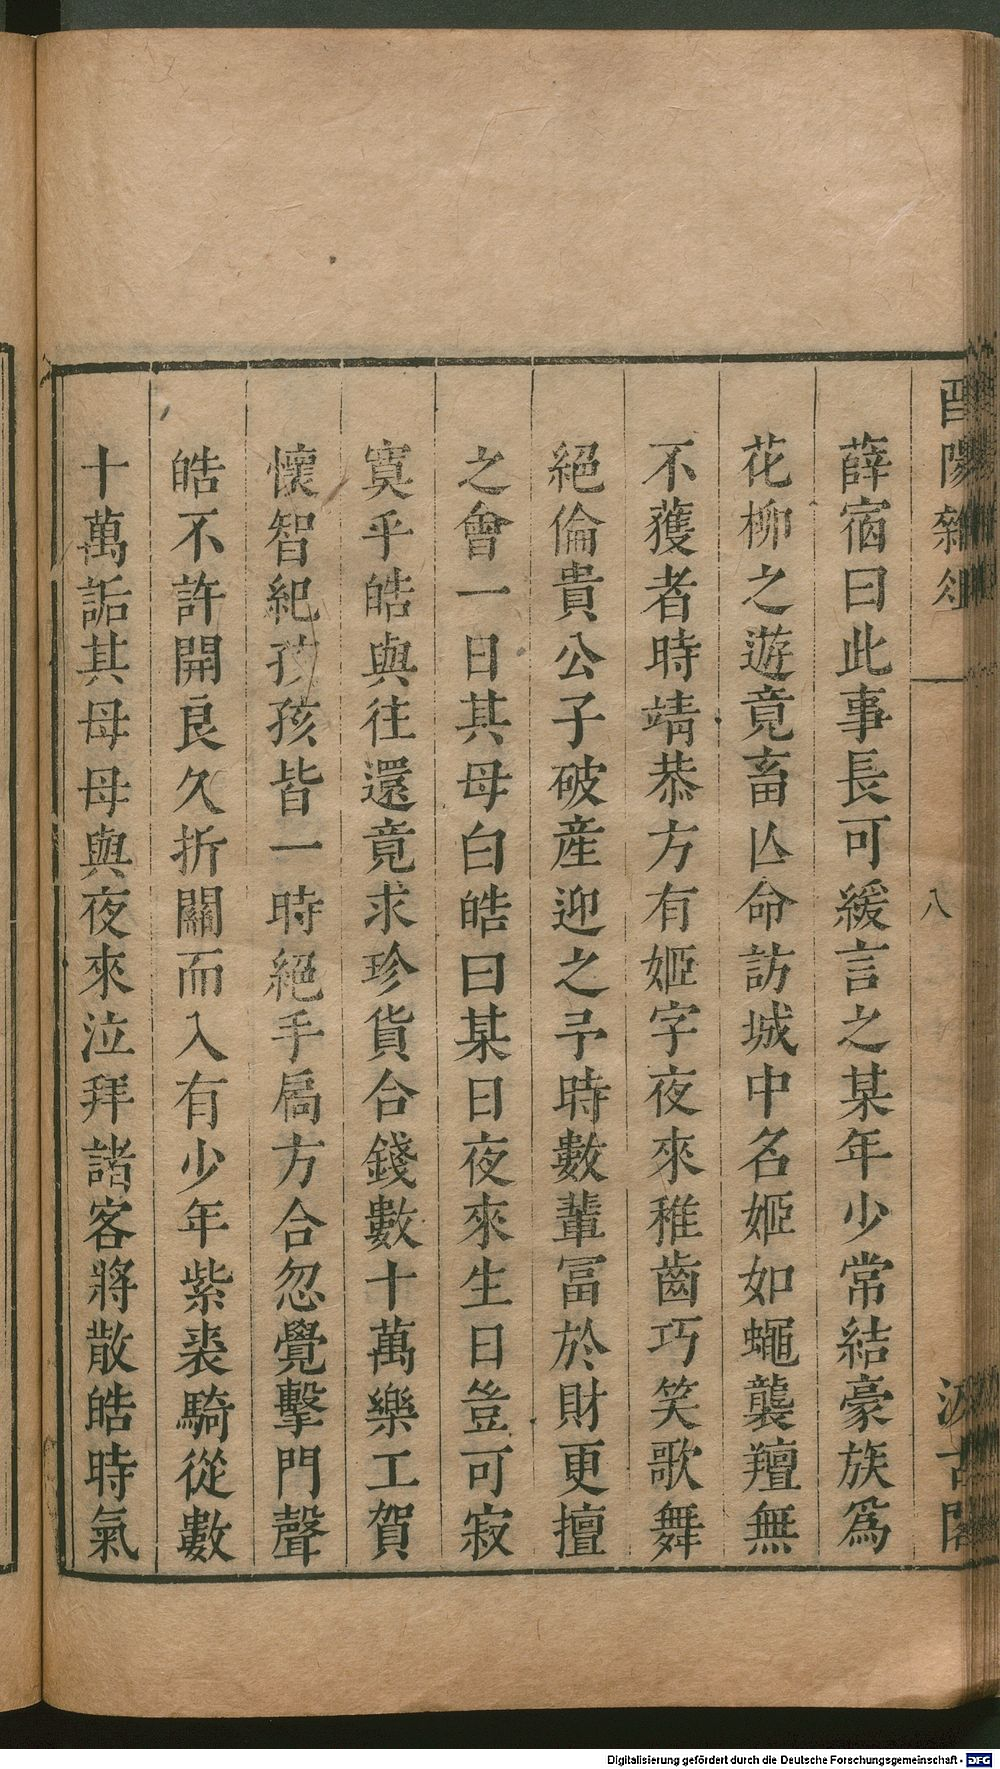 酉陽雜俎
八
汲古閣
薛宿曰此事長可緩言之某年少常結豪族爲
花柳之遊竟畜亾命訪城中名姬如蠅襲羶無
不獲者時靖恭方有姬字夜來稚齒巧笑歌舞
絕倫貴公子破產迎之予時數輩冨於財更擅
之會一日其母白皓曰某日夜來生日豈可寂
寞乎皓與往還竟求珍貨合錢數十萬樂工賀
懷智紀孩孩皆一時絕手扃方合忽覺擊門聲
皓不許開良久折關而入有少年紫裘騎從數
十萬詬其母母與夜來泣拜諸客將散皓時氣
Digitalisierung gefördert durch die Deutsche Forschungsgemeinschaft - DFG